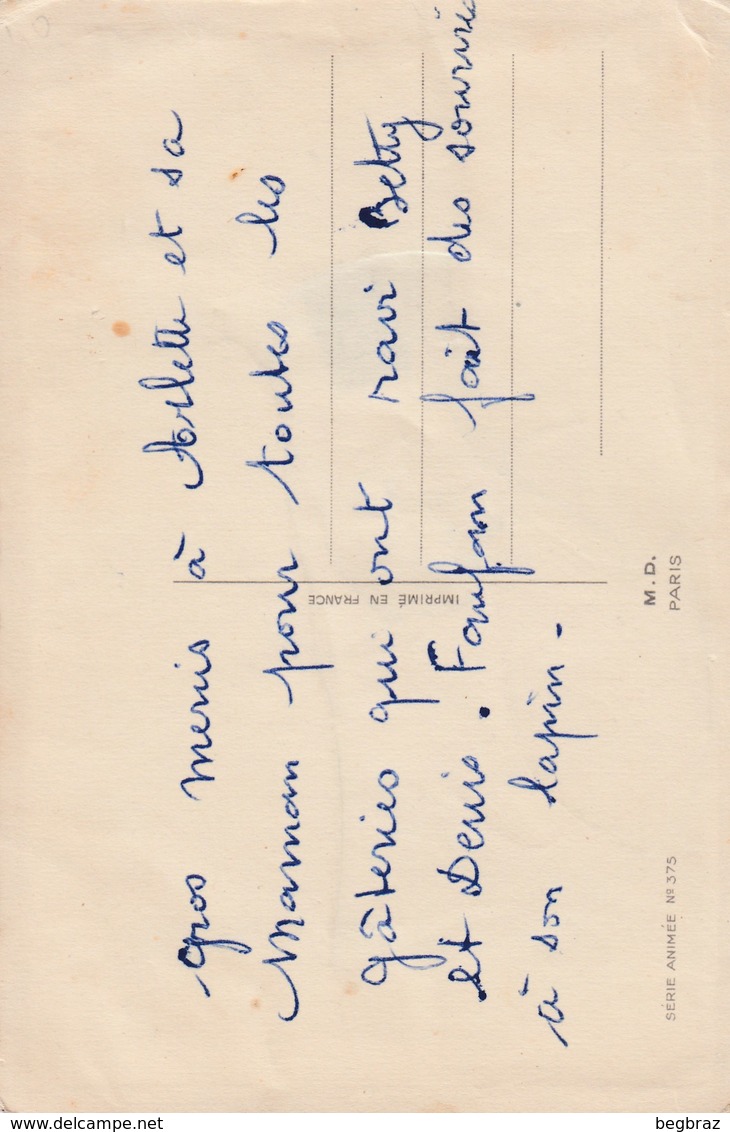 Gros mercis à Arlette et sa
Maman pour toutes les
Gâteries qui ont ravi Betty
et Denis. Fanfan fait des sourires
à son lapin.
IMPRIMÉ EN FRANCE
M. D.
PARIS
SÉRIE ANIMÉE Nº 375
delcampe.net
begbraz